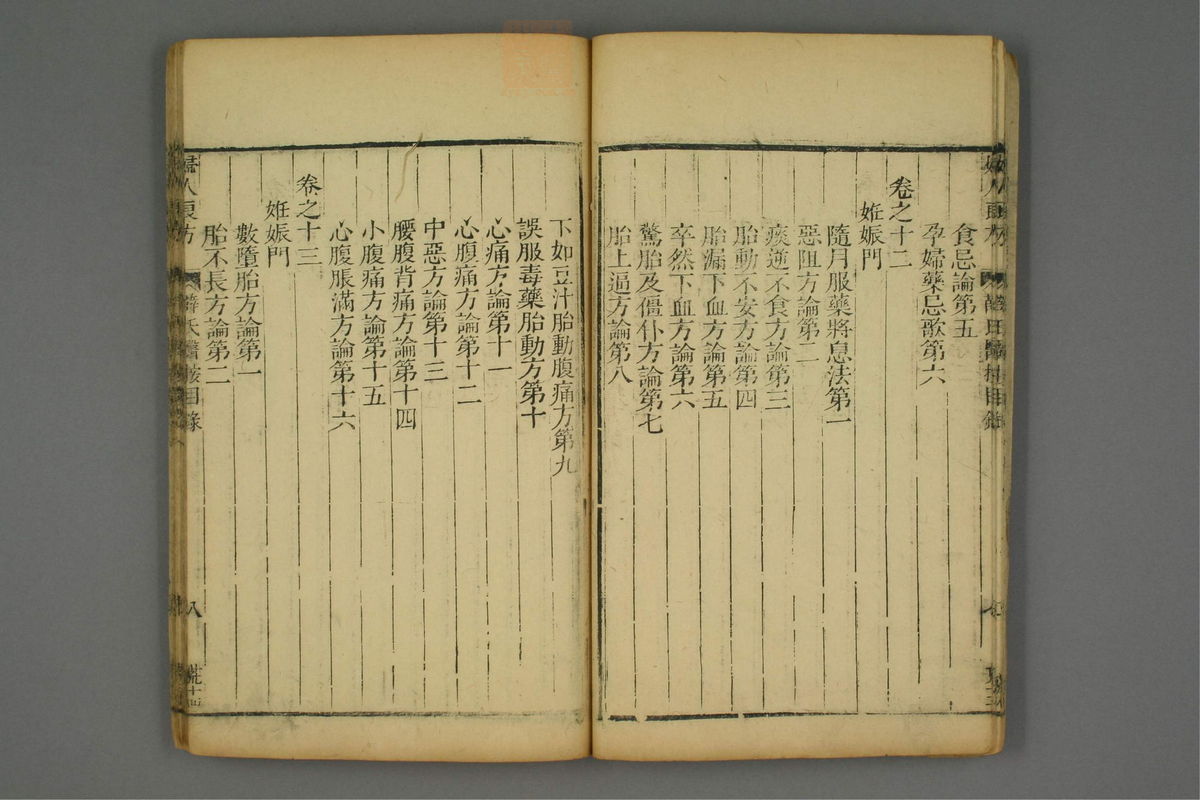 食忌論第五
孕婦藥忌歌第六
卷之十二
姙娠門
隨月服藥將息法第一
惡阻方論第二
痰逆不食方論第三
胎動不安方論第四
胎漏下血方論第五
卒然下血方論第六
驚胎及僵仆方論第七
胎上逼方論第八
下如豆汁胎動腹痛方第九
誤服毒藥胎動方第十
心痛方論第十一
心腹痛方論第十二
中惡方論第十三
腰腹背痛方論第十四
小腹痛方論第十五
心腹脹滿方論第十六
卷之十三
姙娠門
數墮胎方論第一
胎不長方論第二
婦人良方 薛氏醫按目錄 八